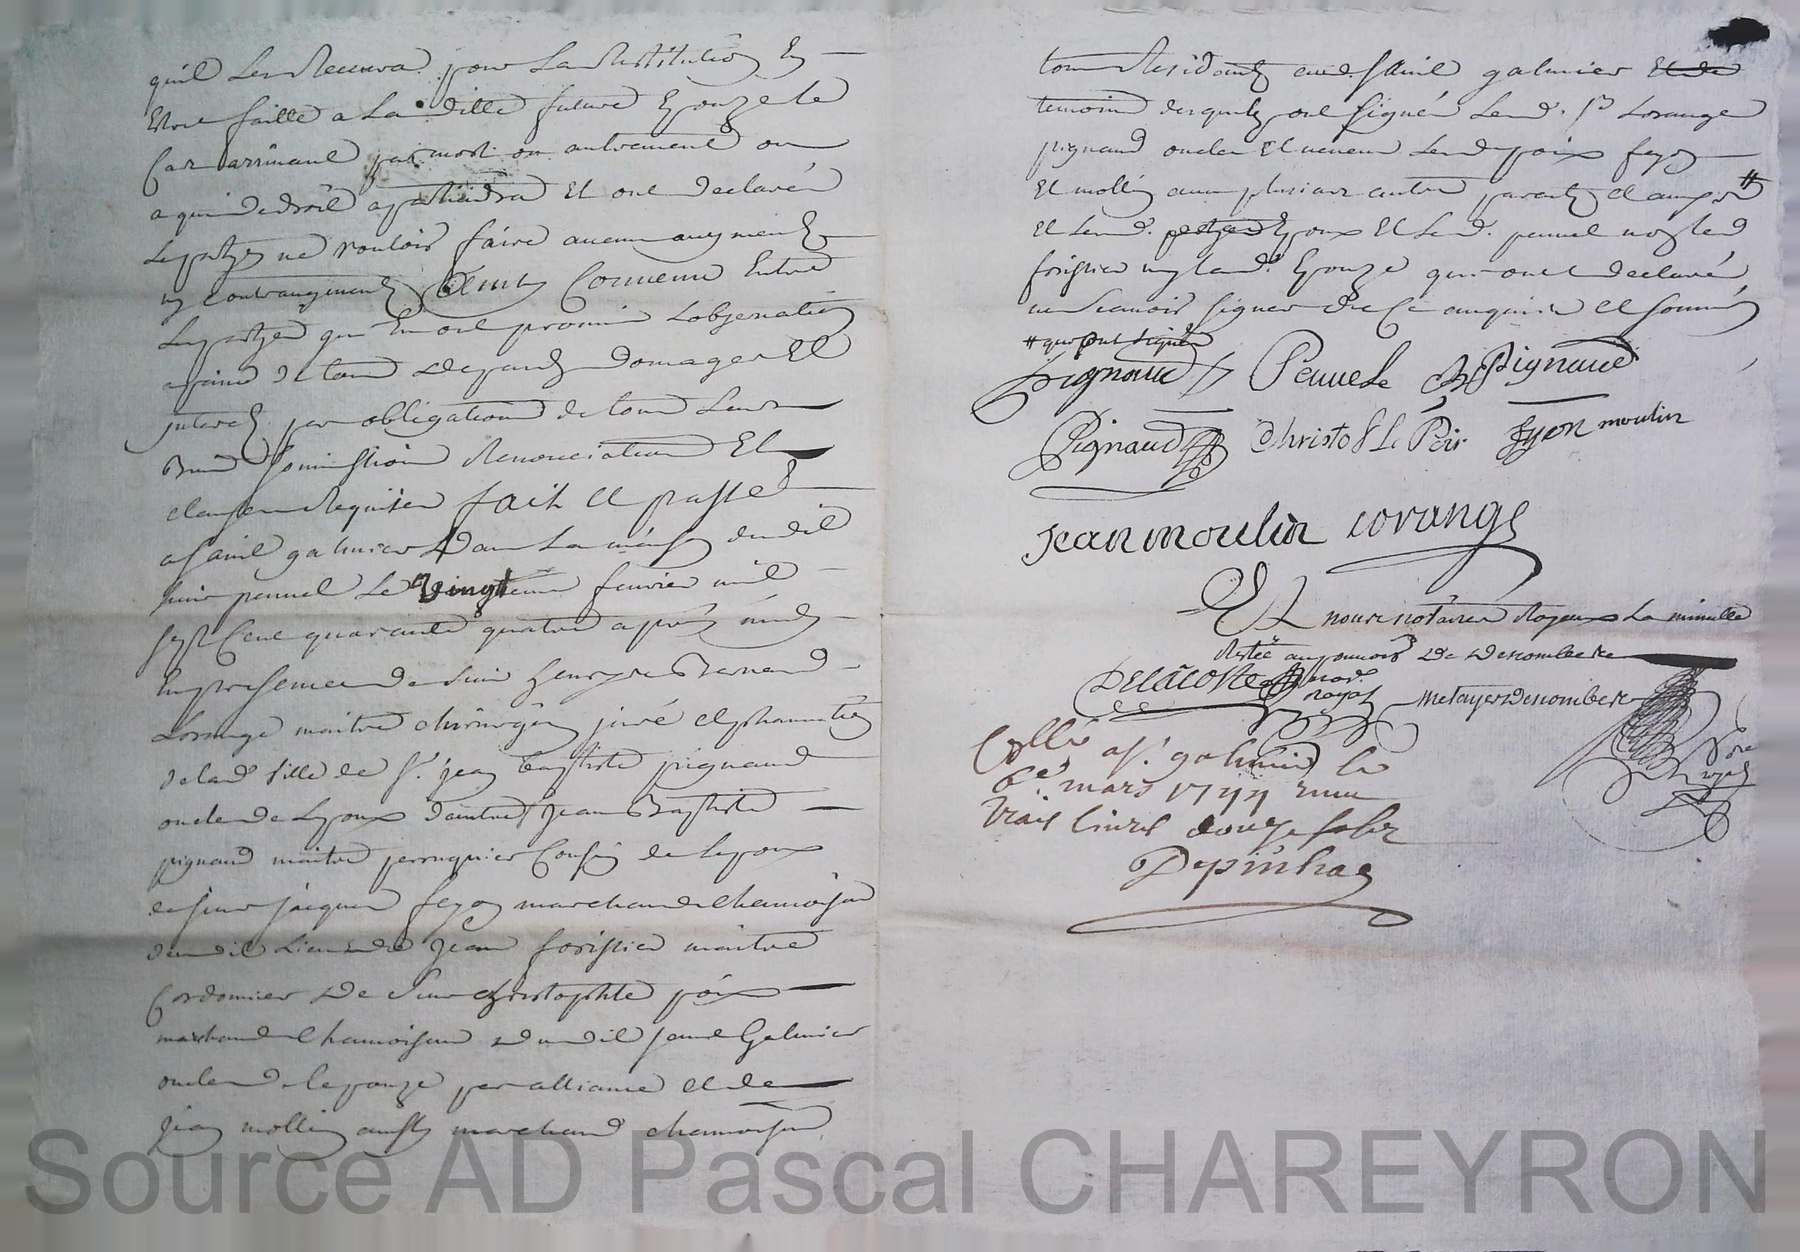 quil les Recevra pour La Restitution En
Estre faitte a La ditte future Epouze le
Cas arrivant par mort ou autrement ou
a qui de droit apartiendra Et ont declarés
Les partyes ne vouloir faire aucun augment
ny contraugment Ainsy Convenu Entre
Les partyes qui En ont promis Lobservation
a peine de tous depends domages Et
interes par obligation de tous Leurs
Biens Soumission Renonciation Et
clauses Requises fait et passé
a saint galmier dans La maison dudit
sieur pennel Le Vingtieme fevrier mil
sept Cent quarante quatre apres midy
En presence de sieur henry Bernard
Lorange maitre chirurgien juré
de lad. ville de Sr. jean baptiste pignaud
oncle de Lepoux dautre jean Baptiste
pignaud maitre perruquier Cousin de Lepoux
de sieur jacques feyon marchand chamoiseur
dudit lieu de jean forissier maitre
Cordonnier de Sieur christophle poix
marchand chamoiseur dudit saint Galmier
oncle de lepouze par alliance et de
jean mollin aussy marchand chamoiseur
tous Residants aud. saint galmier
temoins desquels ont signés Led. Sr Lorange
pignaud oncle Et neveu Led. poix feyon
Et mollin avec plusieurs autres parents et amys #
Et Led. Epoux Et Led. pennel non lad.
forissier ny lad. Epouze qui ont declarés
ne scavoir signer de Ce enquis et sommés
# qui ont signés
Pignaud Pennele Pignaud
Pignaud Christofle Poix fyon moulin
jean moulin Lorange
Et nous notaires Royaux La minutte
Restée au pouvoir De Denombere
Delacoste nore. royal metayer Denombere nore royal
Collé a St. galmier le
6e. mars 1744
trais livres douze sols
Depinhac
Source AD Pascal CHAREYRON